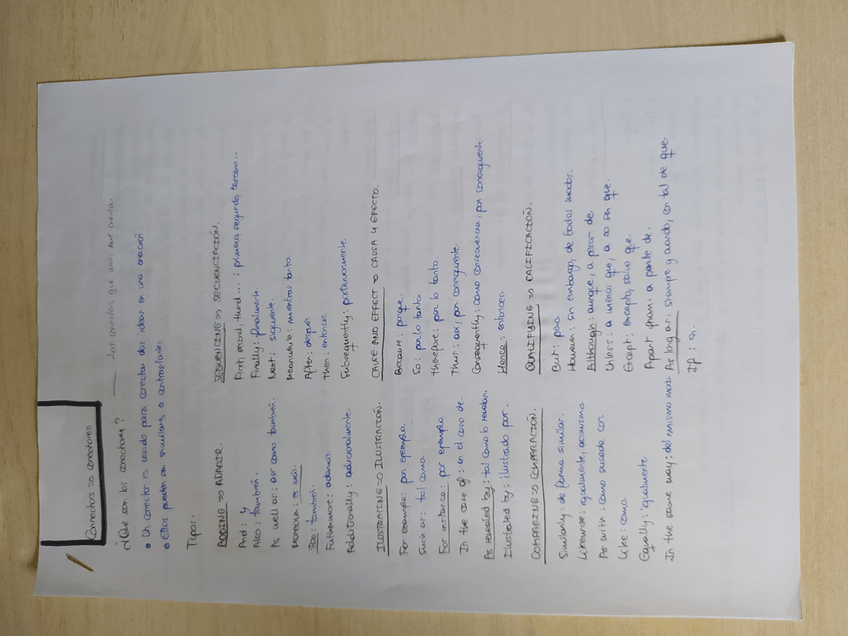 Connectors => conectores
¿Qué son los conectores? Los conectores que unen me cuesta.
• Un conector es usado para conectar dos ideas en una oración
• Ellos pueden ser similares o contrastantes.
Tipos:
ADDING => AÑADIR.
And: y
Also: también.
As well as: así como también.
Moreover: es más
Too: también.
Furthermore: además.
Additionally: adicionalmente.
SEQUENCING => SECUENCIACIÓN.
First, second, third...: primero, segundo, tercero...
Finally: finalmente
Next: siguiente.
Meanwhile: mientras tanto.
After: después
Then: entonces
Subsequently: posteriormente
ILUSTRATING => ILUSTRACIÓN.
For example: por ejemplo.
Such as: tal como.
For instance: por ejemplo.
In the case of: en el caso de.
As revealed by: tal como lo revelan.
Ilustrated by: ilustrado por.
CAUSE AND EFFECT => CAUSA Y EFECTO.
Because: porque.
So: por lo tanto
therefore: por lo tanto
Thus: así, por consiguiente
Consequently: como consecuencia, por consiguiente
Hence: entonces
COMPARING => COMPARACIÓN.
Similarly: de forma similar.
Likewise: igualmente, asimismo
As with: como sucede con
Like: como.
Equally: igualmente
In the same way: del mismo modo
QUALIFYING => CALIFICACIÓN.
But: pero
However: sin embargo, de todos modos.
Although: aunque, a pesar de
Unless: a menos que, a no ser que.
Except: excepto, salvo que.
Apart from: a parte de.
As long as: siempre y cuando, con tal de que.
If: si.